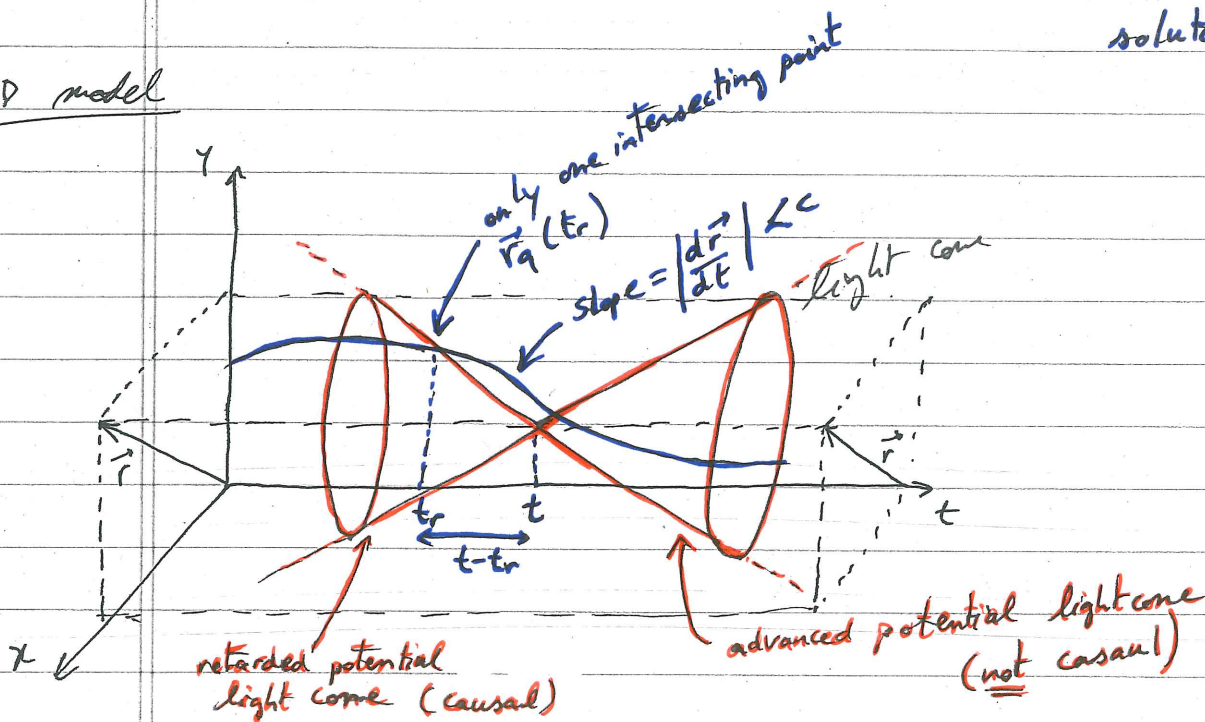 D model
only one intersecting point
r⃗q(tr)
slope = |dr⃗/dt| < c
light cone
Y
r⃗
r⃗
tr
t
t
t-tr
x
retarded potential
light come (causal)
advanced potential lightcone
(not casaul)